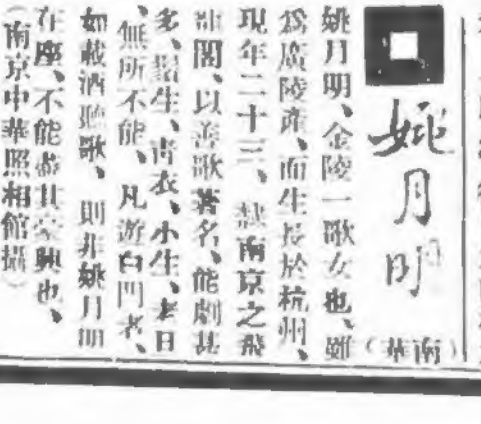 姚月明
(南華)
姚月明、金陵一歌女也、雖
爲廣陵產、而生長於杭州、
現年二十三、隸南京之飛
閣、以善歌著名、能劇甚
多、鬚生、青衣、小生、老旦
、無所不能、凡游白門者、
如載酒聽歌、則非姚月明
在座、不能盡其豪興也、
(南京中華照相館攝)